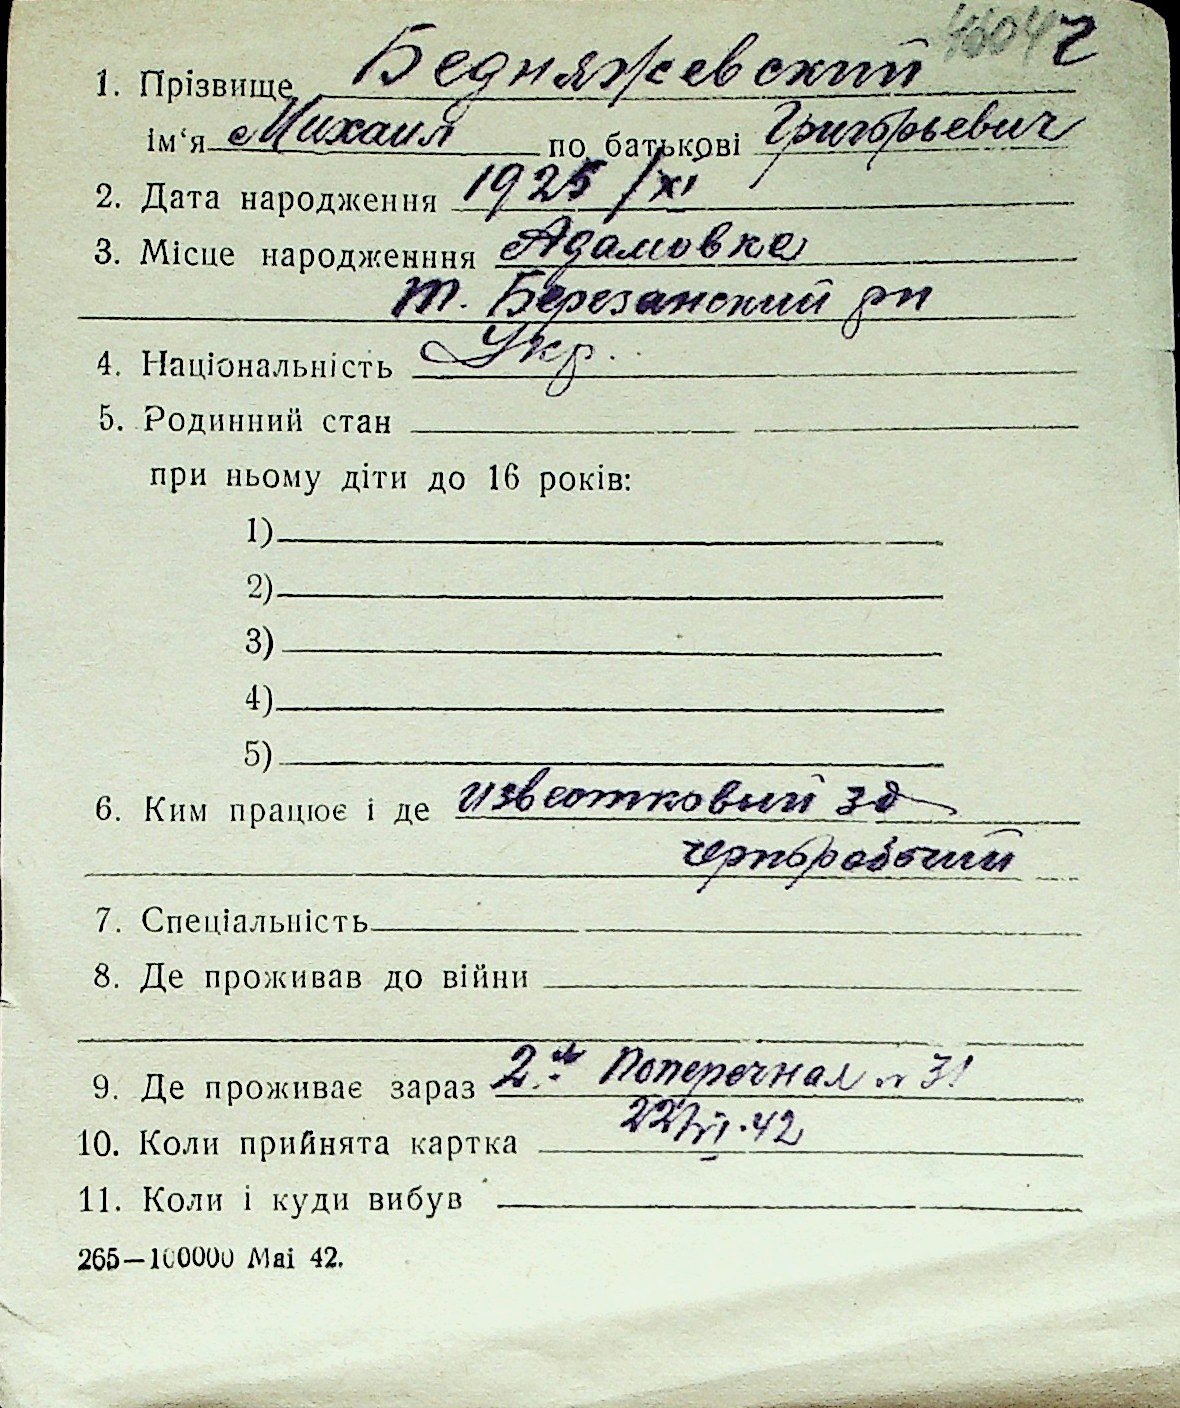 4604 г
1. Прізвище Бедняжевский
ім'я Михаил по батькові Григорьевич
2. Дата народження 1925 /XI
3. Місце народженння Адамовка
т. Березанский рн
4. Національність Укр.
5. Родинний стан
при ньому діти до 16 років:
1)
2)
3)
4)
5)
6. Ким працює і де известковый зд
чернорабочий
7. Спеціальність
8. Де проживав до війни
9. Де проживає зараз 2.ая Поперечная н 31
10. Коли прийнята картка 22/VI.42
11. Коли і куди вибув
265—100000 Маі 42.